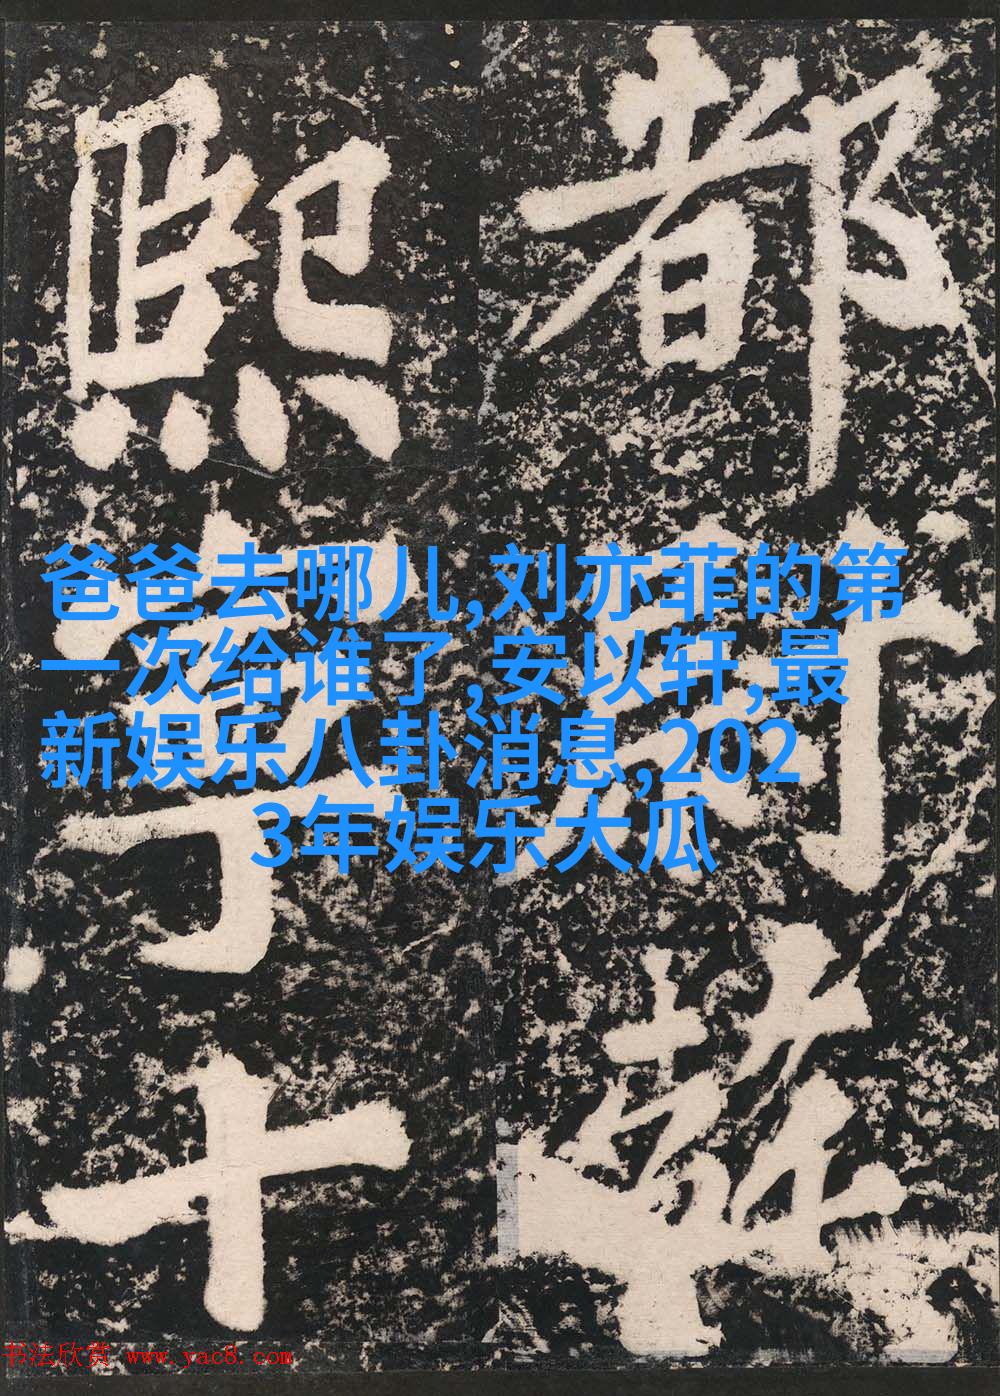 都
熙
十
爸爸去哪儿,刘亦菲的第
一次给谁了,安以轩,最
新娱乐八卦消息,202
3年娱乐大瓜
书法欣赏 www.yac8.com